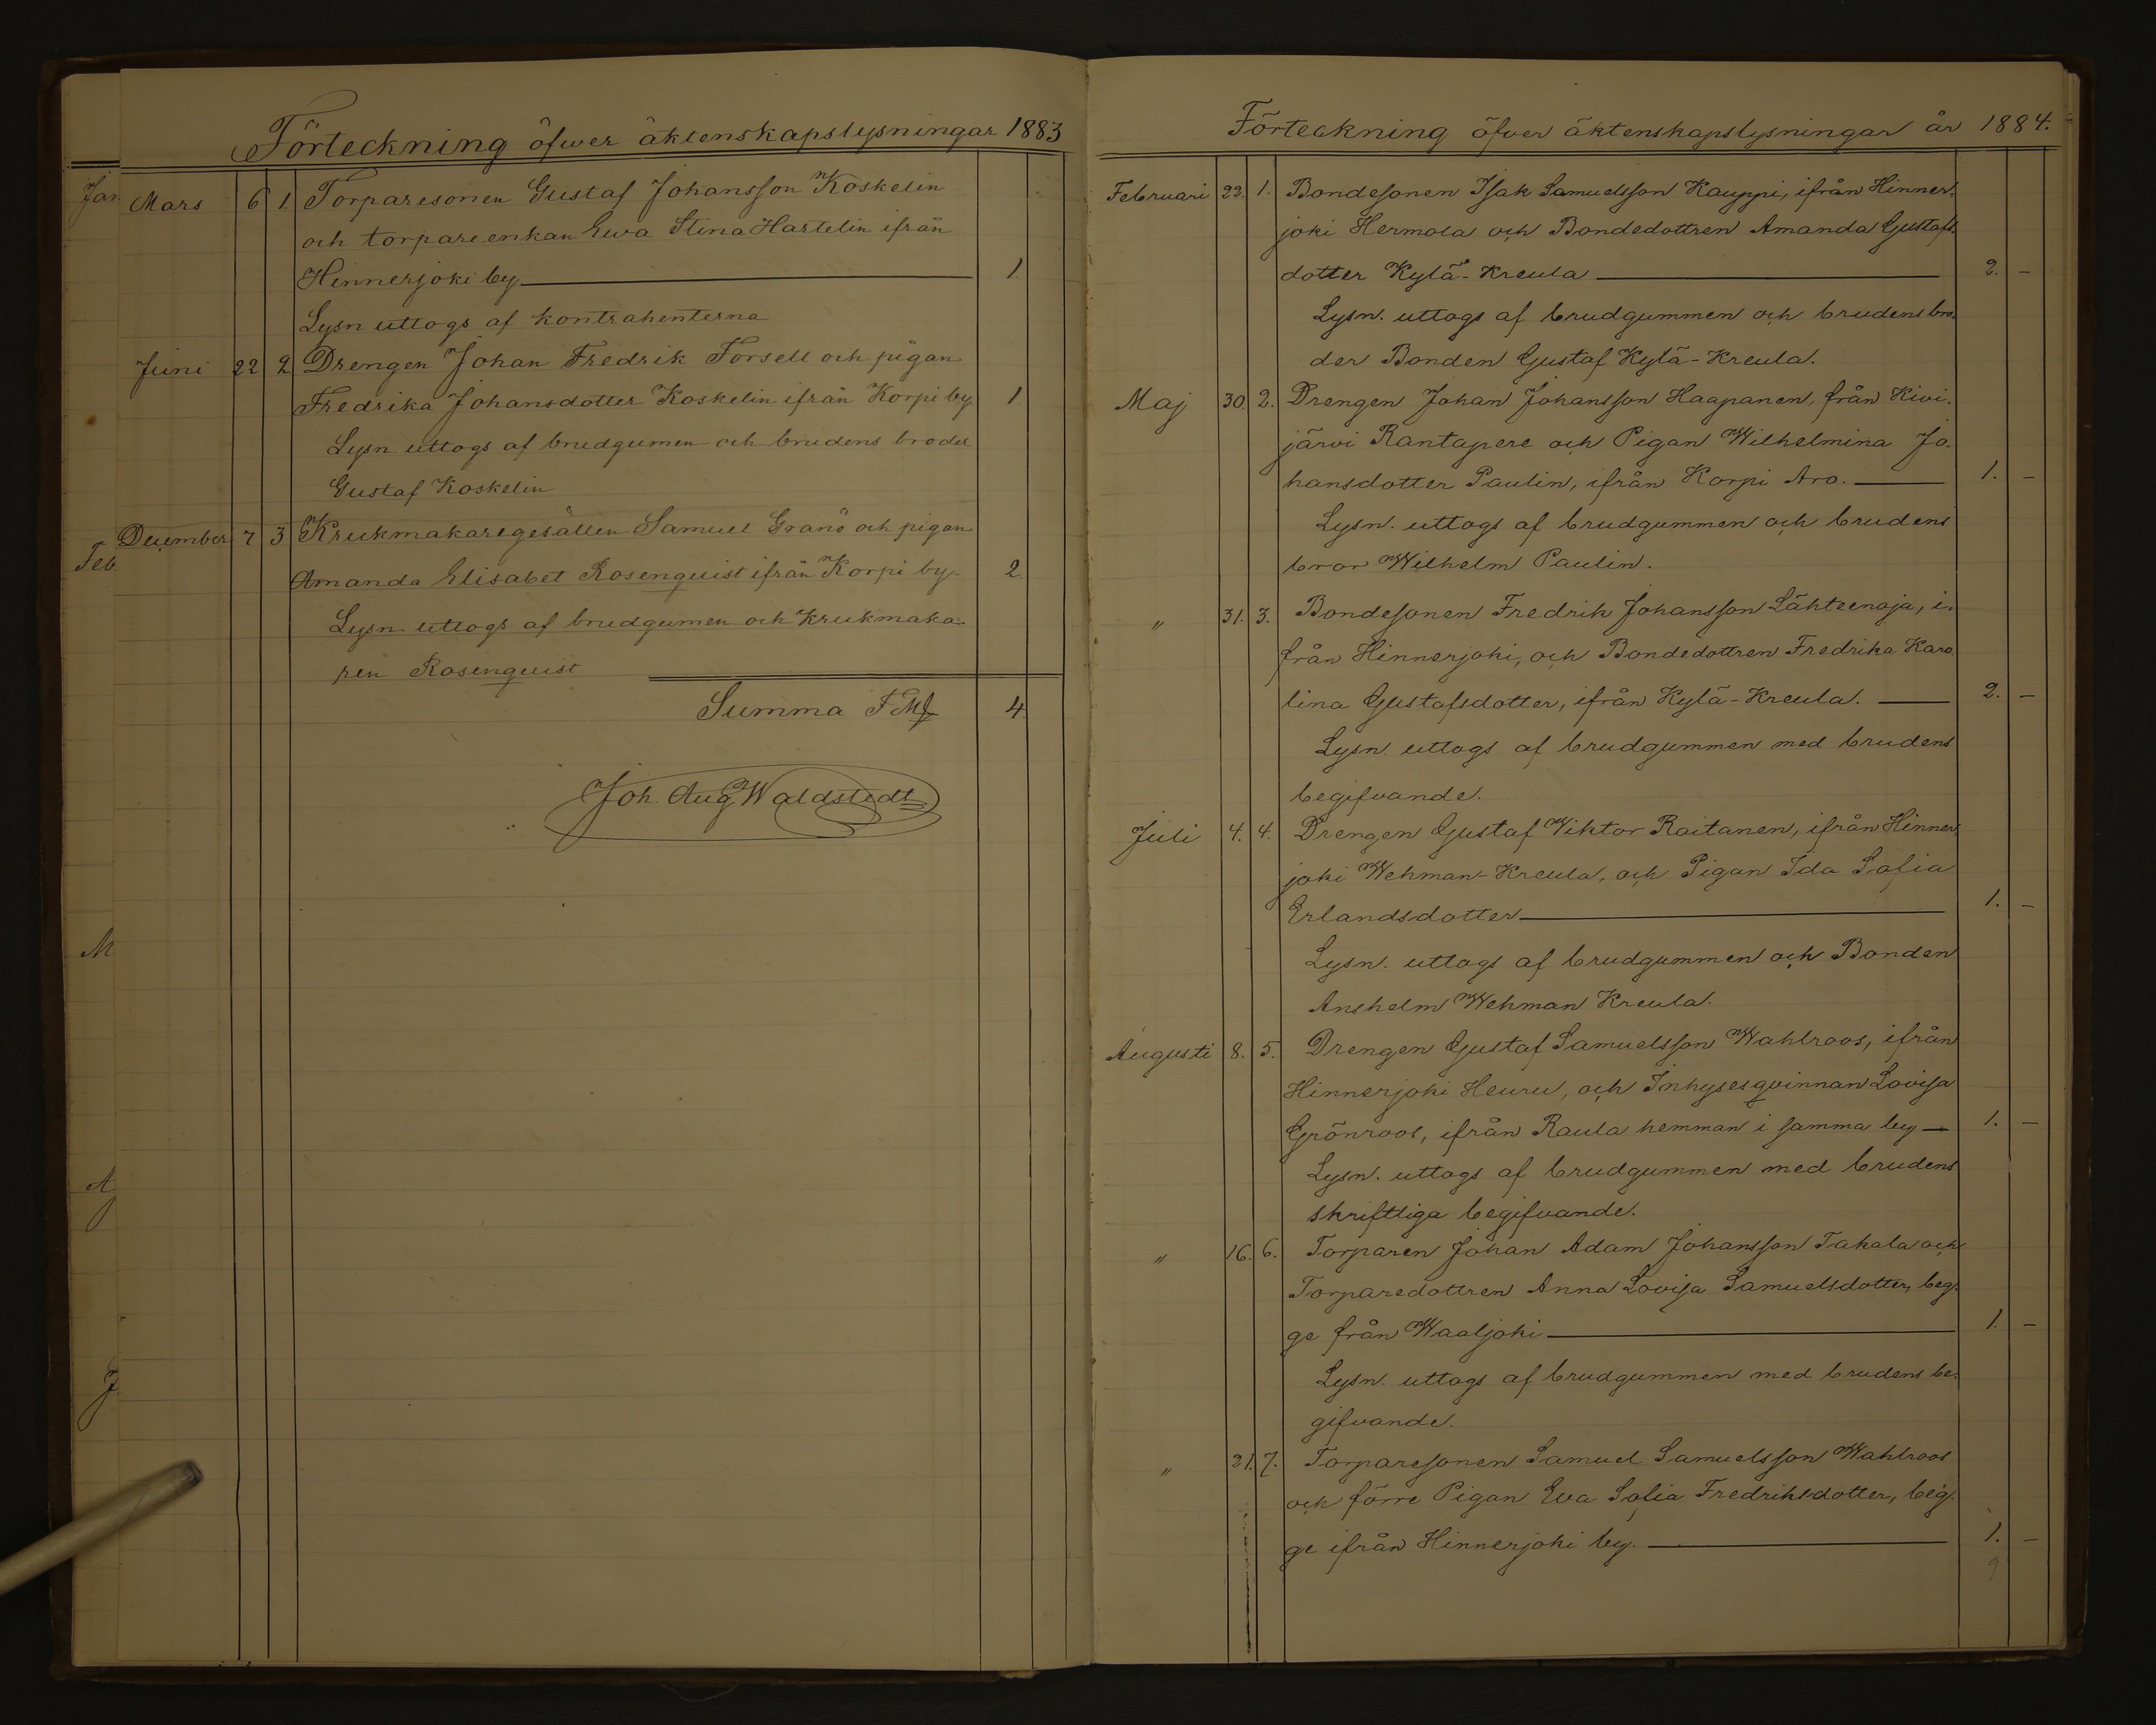 Förteckning öfwer äktenskapslysningar 1883
Mars 6 1. Torparesonen Gustaf Johansson Koskelin
och torpareenkan Ewa Stina Hartelin ifrån
Hinnerjoki by 1.
Lysn uttogs af kontrahenterna
Juni 22 2 Drengen Johan Fredrik Forsell och pigan
Fredrika Johansdotter Koskelin ifrån Korpi by 1
Lysn. uttogs af brudgumen och brudens broder
Gustaf Koskelin
December 7 3 Krukmakaregesällen Samuel Granö och pigan
Amanda Elisabet Rosenquist ifrån Korpi by 2.
Lysn uttogs af brudgumen och Krukmaka-
ren Rosenquist
Summa Fmk 4.
Joh. Aug Waldstedt
Jan
Feb
M
A
J
Förteckning öfver äktenskapslysningar år 1884.
Februari 22. 1. Bondesonen Isak Samuelsson Kauppi, ifrån Hinner-
joki Hermola och Bondedottren Amanda Gustafs-
dotter Kylä-Kreula 2. –
Lysn. uttogs af brudgummen och brudens bro-
der Bonden Gustaf Kylä-Kreula.
Maj 30. 2. Drengen Johan Johansson Haapanen, från Kivi-
järvi Rantapere och Pigan Wilhelmina Jo-
hansdotter Paulin, ifrån Korpi Aro. 1. –
Lysn. uttogs af brudgummen och brudens
bror Wilhelm Paulin.
" 31. 3. Bondesonen Fredrik Johansson Lähteenoja, i-
från Hinnerjoki, och Bondedottren Fredrika Karo-
lina Gustafsdotter, ifrån Kylä-Kreula. 2. –
Lysn. uttogs af brudgummen med brudens
begifvande.
Juli 4. 4. Drengen Gustaf Viktor Raitanen, ifrån Hinner-
joki Wehman-Kreula, och Pigan Ida Sofia
Erlandsdotter 1. –
Lysn. uttogs af brudgummen och Bonden
Anshelm Wehman Kreula.
Augusti 8. 5. Drengen Gustaf Samuelsson Wahlroos, ifrån
Hinnerjoki Heuru, och Inhysesqvinnan Lovisa
Grönroos, ifrån Raula hemman i samma by 1. –
Lysn. uttogs af brudgummen med brudens
skriftliga begifvande.
" 16. 6. Torparen Johan Adam Johansson Takala och
Torparedottren Anna Lovisa Samuelsdotter, beg-
ge från Waaljoki 1. –
Lysn. uttogs af brudgummen med brudens be-
gifvande.
" 21. 7. Torparesonen Samuel Samuelsson Wahlroos
och förre Pigan Eva Sofia Fredriksdotter, beg-
ge ifrån Hinnerjoki by. 1. –
9